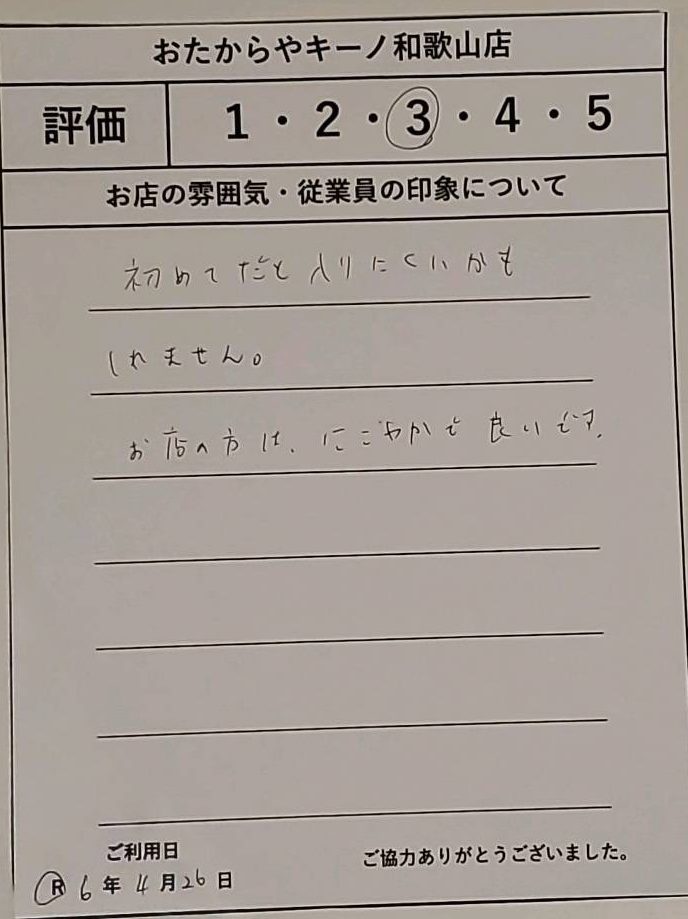 おたからやキーノ和歌山店
評価 1・2・3・4・5
お店の雰囲気・従業員の印象について
初めてだと入りにくいかも
しれません。
お店の方は、にこやかで良いです。
ご利用日 ご協力ありがとうございました。
R6年4月26日